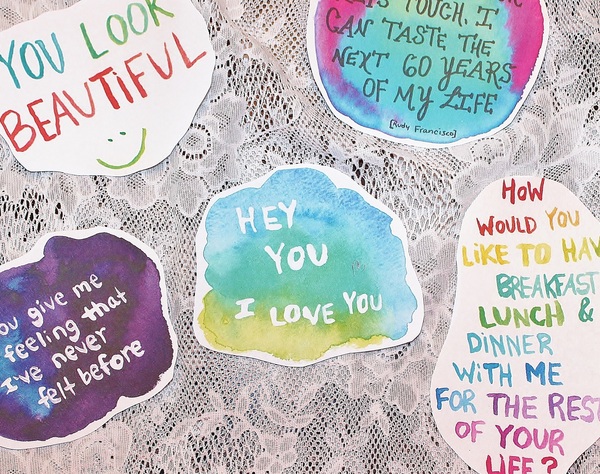 YOU LOOK
BEAUTIFUL
TOUCH, I
CAN TASTE THE
NEXT 60 YEARS
OF MY LIFE
[Rudy Francisco]
HEY
YOU
I LOVE YOU
you give me
feeling that
I've never
felt before
HOW
WOULD YOU
LIKE TO HAV
BREAKFAST
LUNCH &
DINNER
WITH ME
FOR THE REST
OF YOUR
LIFE?